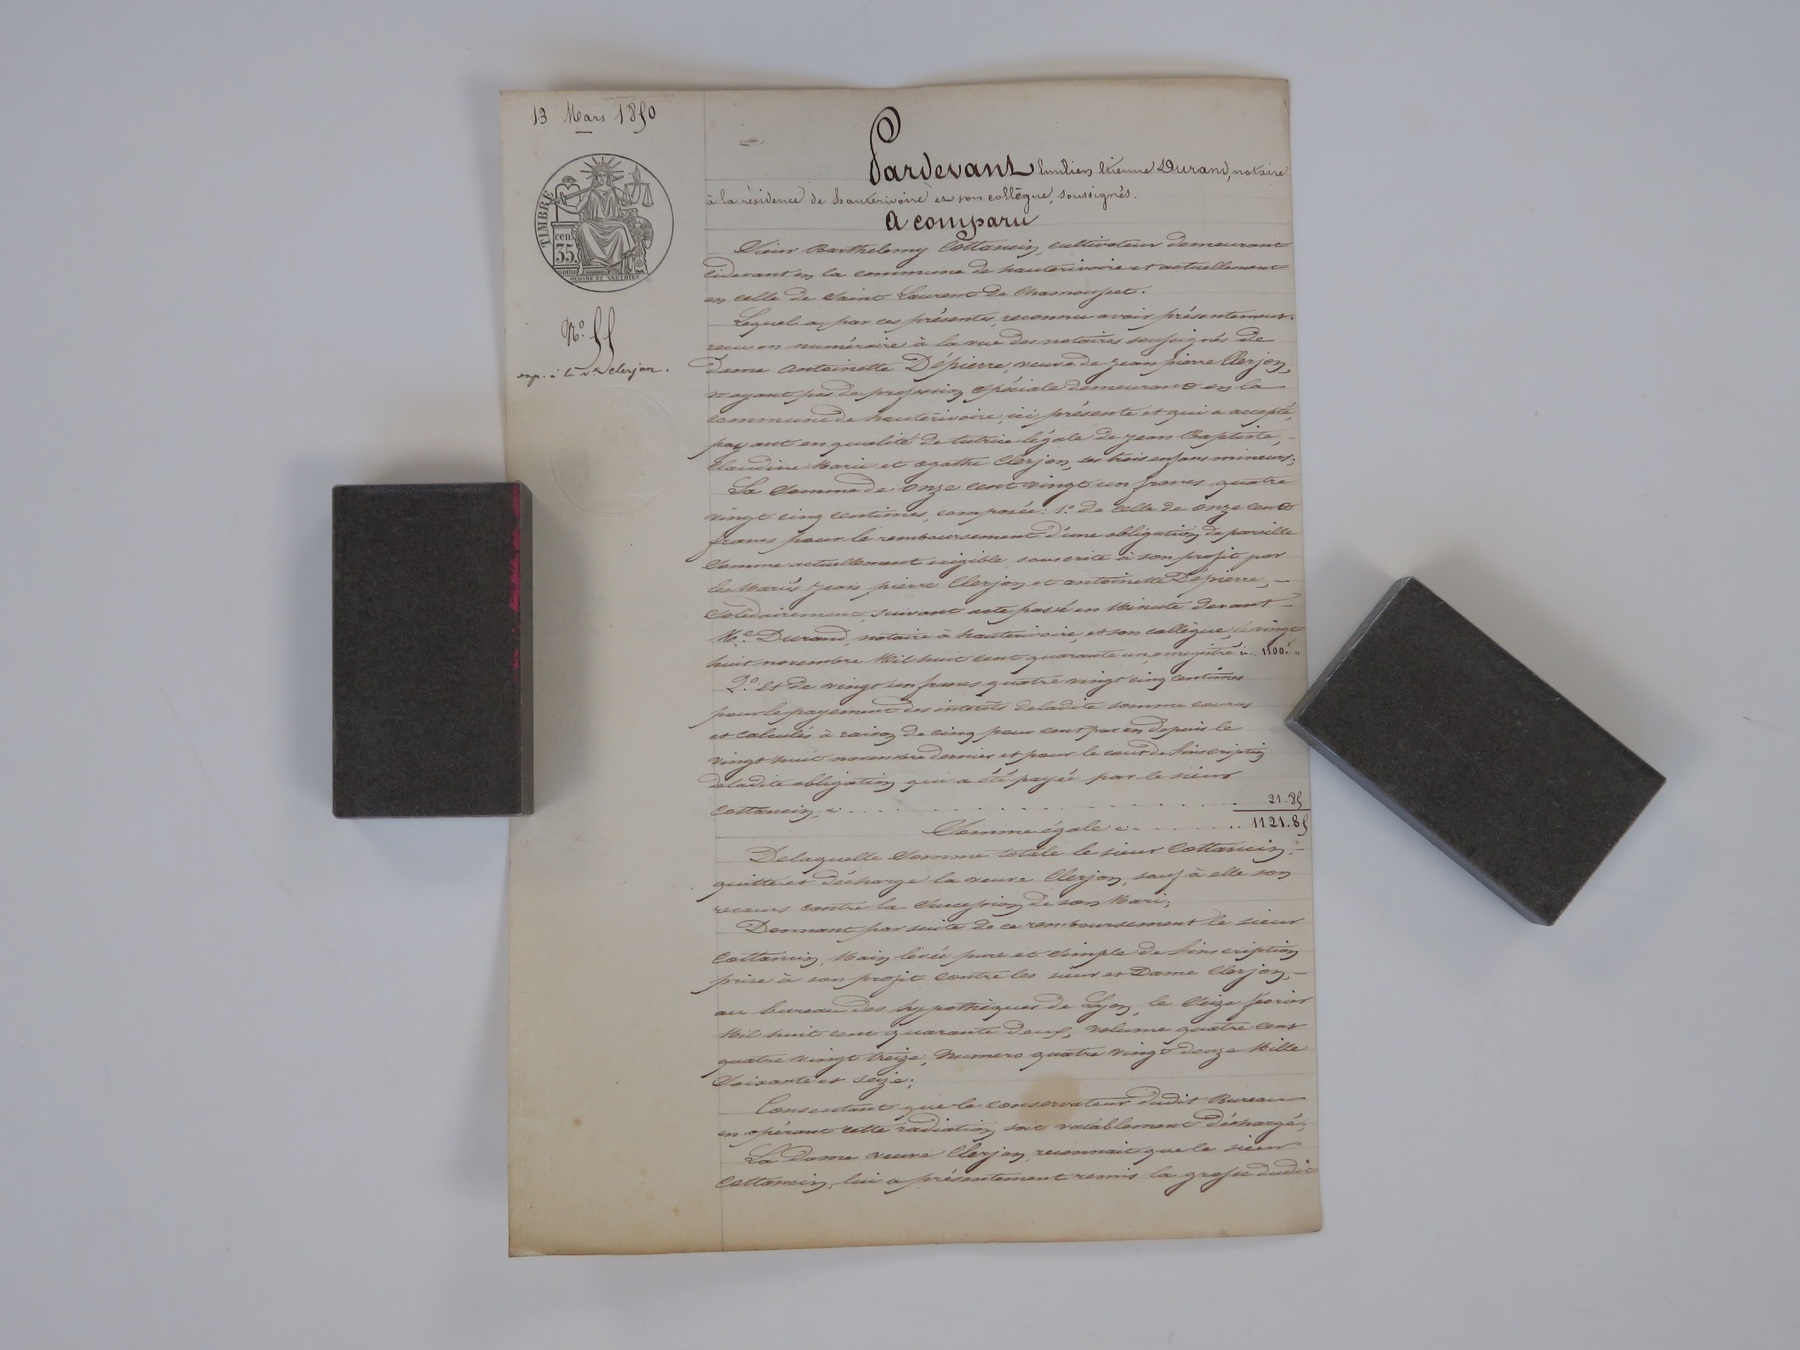 13 Mars 1850
TIMBRE
cen.
35
N.° 55
exp. à la v.ve Clerjon.
Pardevant Emilien Etienne Durand, notaire
à la résidence de hauterivoire et son collègue, soussignés.
A comparu
Sieur Barthelemy Cottancin, cultivateur demeurant
cidevant en la commune de hauterivoire et actuellement
en celle de Saint Laurent de Chamousset.
Lequel a, par ces présentes, reconnu avoir présentement
reçu en numéraire à la vue des notaires soussignés de
Dame antoinette Dépierre, veuve de jean pierre Clerjon,
n'ayant pas de profession spéciale demeurant en la
commune de hauterivoire, ici présente et qui a accepté,
payant en qualité de tutrice légale de jean Baptiste,
Claudine Marie et agathe Clerjon, ses trois enfans mineurs;
La Somme de onze cent vingt un francs quatre
vingt cinq centimes, composée: 1.° de celle de onze cent
francs pour le remboursement d'une obligation de pareille
Somme actuellement exigible, souscrite à son profit par
les Mariés jean pierre Clerjon et antoinette Dépierre,
Solidairement, suivant acte passé en Minute devant
M.e Durand, notaire à hauterivoire, et son collègue, le vingt
huit novembre Mil huit cent quarante un, enregistré ci.. 1100. "
2.° Et de vingt un francs quatre vingt cinq centimes
pour le payement des intérêts deladite somme courus
et calculés à raison de cinq pour cent par an depuis le
vingt huit novembre dernier et pour le cout de l'inscription
deladite obligation qui a été payée par le sieur
Cottancin, ci . . . . . . . . . . . . 21.85
Somme égale ci . . . . . . 1121.85
Delaquelle Somme totale le sieur Cottancin
quitte et décharge la veuve Clerjon, sauf à elle son
recours contre la Succession de son Mari;
Donnant par suite de ce remboursement le sieur
Cottancin, Main levée pure et simple de l'inscription
prise à son profit contre les sieur et Dame Clerjon,
au bureau des hypothèques de Lyon, le Seize février
Mil huit cent quarante deux, volume quatre cent
quatre vingt treize, Numero quatre vingt douze Mille
Soixante et seize;
Consentant que le conservateur dudit Bureau
en opérant cette radiation soit valablement déchargé;
La Dame veuve Clerjon, reconnait que le sieur
Cottancin, lui a présentement remis la grosse dudit